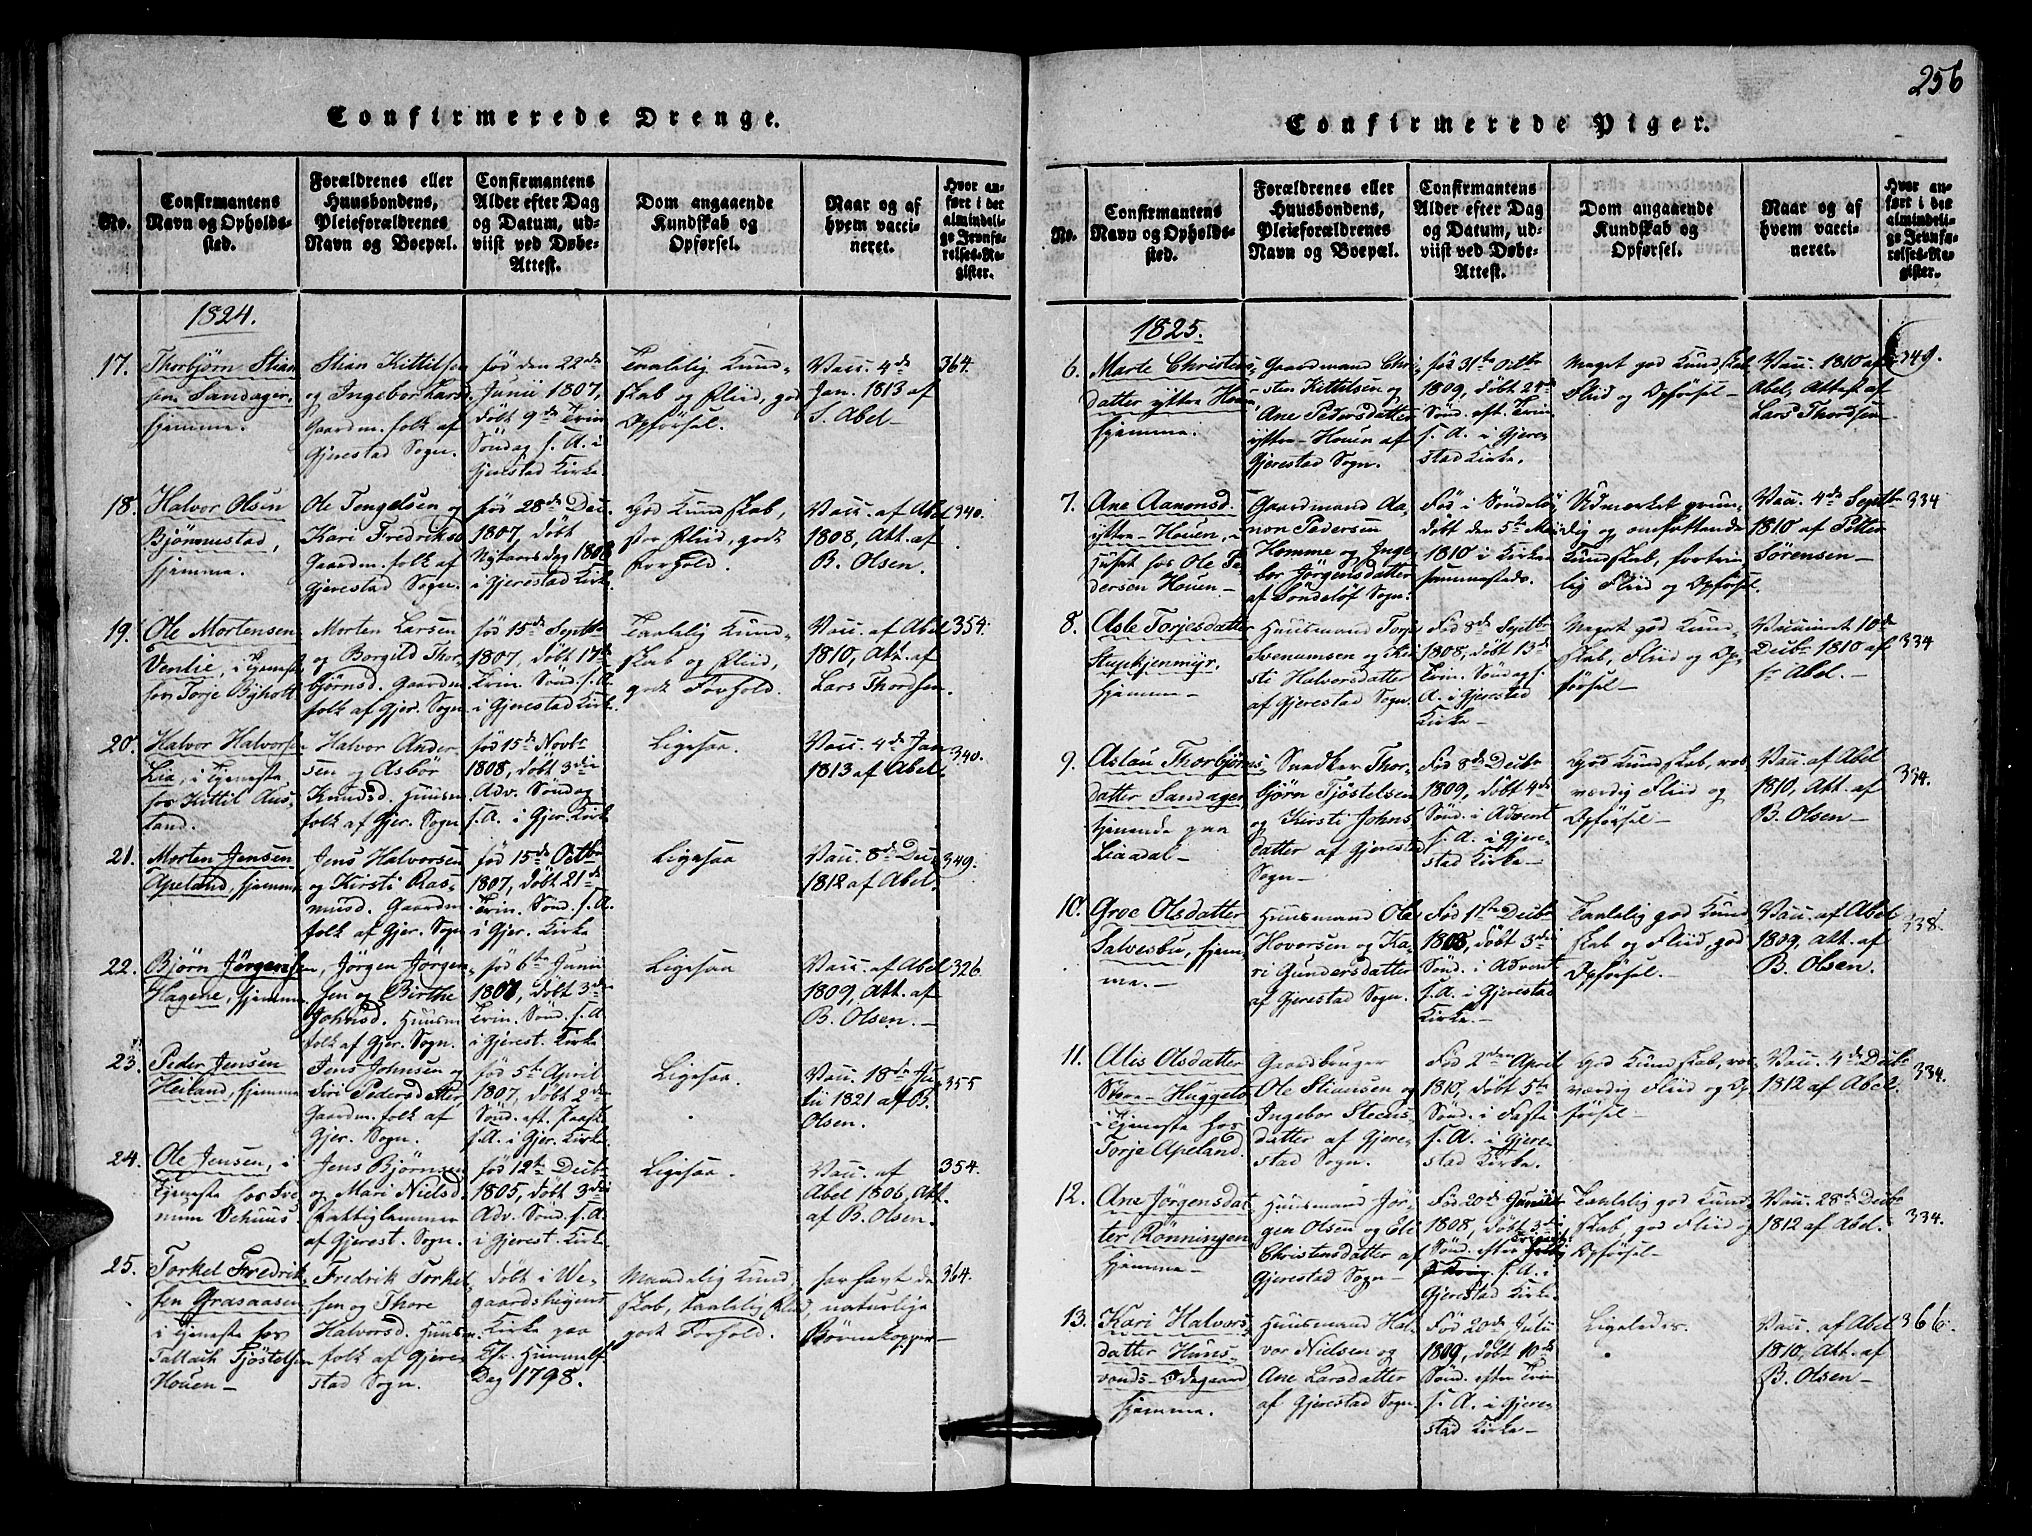 256
Confirmerede Drenge.
No.
Confirmantens
Navn og Opholds-
sted.
Forældrenes eller
Huusbondens,
Pleieforældrenes
Navn og Boepæl.
Confirmantens
Alder efter Dag
og Datum, ud-
viist ved Døbe-
Attest.
Dom angaaende
Kundskab og
Opførsel.
Naar og af
hvem vacci-
neret.
Hvor an-
ført i det
almindeli-
ge Jevnfø-
relses-Re-
gister.
1824.
17.
Thorbjørn Stian
sen Sandager,
hjemme.
Stian Kittilsen
og Ingebor Lars
Gaardm. folk af
Gjerestad Sogn.
fød den 22de
Junii 1807,
døbt 9de Trin
Søndag f. A. i
Gjerestad Kirke.
Taalelig Kund-
skab og Fliid, god
Opførsel.
Vacc. 4de
Jan. 1813 af
S. Abel
364.
18.
Halvor Olsen
Bjønnestad,
hjemme.
Ole Tengelsen og
Kari Fredriksd
Gaardm. folk af
Gjerestad Sogn.
fød 28de Dec.
1807, døbt
Nytaarsdag 1808
i Gjerestad Kirk.
God Kundskab,
stor Fliid, godt
Forhold.
Vacc. af Abel
1808, Att. af
B. Olsen.
340.
19.
Ole Mortensen
Venlie, i Tjeneste
hos Torje Byholt
Morten Larsen
og Borgild Thor-
bjørnsd. Gaardm.
folk af Gjer. Sogn
fød 15de Septbr
1807, døbt 17de
Trin. Sønd. f. A.
i Gjerestad Kirk.
Taalelig Kund-
skab og Fliid,
godt Forhold.
Vacc. af Abel
1810, Att. af
Lars Thordsen.
354.
20.
Halvor Halvorsen
Lia, i Tjeneste
hos Kittil Aus-
land.
Halvor Ander-
sen og Asbør
Knudsd. Huusm.
folk af Gjer. Sogn
fød 15de Novbr
1808, døbt 3die
Adv. Søndag
f. A. i Gjer. Kirke
Ligesaa.
Vacc. 4de Jan
1813 af Abel.
340.
21.
Morten Jensen
Apeland, hjemme
Jens Halvorsen
og Kirsti Ras-
musd. Gaardm.
folk af Gjer. Sogn
fød 15de Octbr
1807, døbt 21de
Trin. Sønd. f. A.
i Gjer. Kirke
Ligesaa
Vacc. 8de Dec.
1812 af Abel.
349.
22.
Bjørn Jørgensen,
Hagene, hjemme
Jørgen Jørgen-
sen og Birthe
Johnsd. Huusm
folk af Gjer. Sogn.
fød 6te Junii
1807, døbt 3de
Trin. Sønd. f. A
i Gjerest. Kirke
Ligesaa
Vacc. af Abel
1809, Att. af
B. Olsen.
326
23.
Peder Jensen
Heiland, hjemme
Jens Johnsen og
Siri Pedersdatter
Gaardm. folk af
Gjer. Sogn.
fød 5te April
1807, døbt 2de
Sønd. eft. Paaske
f. A. i Gjer. Kirke.
Ligesaa.
Vacc. 18de Ju
lii 1821 af B.
Olsen.
355
24.
Ole Jensen, i
Tjeneste hos
Jens Bjørnsen
og Mari Nielsd.
Fattiglemmer
af Gjerest. Sogn.
fød 12te Decbr
1805, døbt 3die
Adv. Sønd. f. A.
i Gjerest. Kirke.
Ligesaa.
Vacc. af
Abel 1806, Att.
af B. Olsen.
354.
25.
Torkel Fredrik
sen Grasaasen
i Tjeneste hos
Tallack Tjøstelsen
Houen
Fredrik Torkel
sen og Thore
Halvorsd. Huusm.
folk af Gjere-
stad Sogn.
døbt i We-
gaardsheyens
Kirke paa
Chr. Himmelf
Dag 1798.
Maadelig Kund
skab, taalelig Fliid,
godt Forhold.
har havt de
naturlige
Børnekopper
364.
Confirmerede Piger.
No.
Confirmantens
Navn og Opholds-
sted.
Forældrenes eller
Huusbondens,
Pleieforældrenes
Navn og Boepæl.
Confirmantens
Alder efter Dag
og Datum, ud-
viist ved Døbe-
Attest.
Dom angaaende
Kundskab og
Opførsel.
Naar og af
hvem vacci-
neret.
Hvor an-
ført i det
almindeli-
ge Jevnfø-
relses-Re-
gister.
1825.
6.
Marte Christens-
datter yttre Houen
hjemme.
Gaardmand Chri-
sten Kittilsen og
Ane Pedersdatter
yttre Houen af
Gjerestad Sogn.
fød 31te Octbr
1809, døbt 24de
Sønd. eft. Trin
f. A. i Gjere-
stad Kirke.
Meget god Kundskab
Fliid og Opførsel
Vacc. 1810 af
Abel, Attest af
Lars Thordsen
349.
7.
Ane Aanonsd.
yttre Houen,
huset hos Ole Pe
dersen Houen
Gaardmand Aa-
non Pedersen
Homme og Inge-
bor Jørgensdatter
af Søndeløf Sogn.
Fød i Søndeløf
døbt den 5te Mai
1810 i Kirken
sammesteds.
Udmerket grun-
dig og omfattende
Kundskab, fortrin
lig Fliid og Opførsel.
Vacc. 4de Septbr
1810 af Petter
Sørensen
334
8.
Asle Torjesdatter
Stupkjenmyr,
hjemme
Huusmand Torje
Svenumsen og Kir
sti Halvorsdatter
af Gjerestad Sogn.
Fød 8de Septbr
1808, døbt 13de
Trin. Søndag f.
A. i Gjerestad
Kirke
Meget god Kund-
skab, Fliid og Op-
førsel
Vaccineret 10de
Decbr 1810 af
Sr Abel.
334
9.
Aslau Thorbjørns-
datter Sandager,
tjenende paa
Liaadal
Snedker Thor-
bjørn Tjøstelsen
og Kirsti Johns
datter af Gjerestad
Sogn
Fød 8de Decbr
1809, døbt 4de
Sønd. i Advent
f. A. i Gjere-
stad Kirke
God Kundskab, ros
værdig Fliid og
Opførsel
Vacc. af Abel
1810, Att. af
B. Olsen
334.
10.
Groe Olsdatter
Salvesbu, hjem
me.
Huusmand Ole
Hovorsen og Ka-
ri Gundersdatter
af Gjerestad Sogn.
Fød 1te Decbr
1808, døbt 3die
Sønd. i Advent
f. A. i Gjerestad
Kirke.
Taalelig god Kund
skab og Fliid, god
Opførsel.
Vacc. af Abel
1809. Att. af
B. Olsen.
338.
11.
Alis Olsdatter
Store Huggeto
i Tjeneste hos
Torje Apeland.
Gaardbruger
Ole Stiansen og
Ingebor Steens
datter af Gjere-
stad Sogn.
Fød 2den April
1810, døbt 5te
Sønd. i Faste
f. A. i Gjere-
stad Kirke.
God Kundskab, ros
værdig Fliid og Op
førsel
Vacc. 4de Decbr
1812 af Abel.
334.
12.
Ane Jørgensdat
ter Rønningen
hjemme
Huusmand Jør-
gen Olsen og Ele
Christensdatter af
Gjerestad Sogn
Fød 20de Junii
1808, døbt 3die
Sønd. efter
f. A. i
Gjerestad Kirke.
Taalelig god Kund
skab god Fliid og
Opførsel
Vacc. 28de Decbr
1812 af Abel.
334.
13.
Kari Halvors
datter Huus-
vonds Ødegaard
hjemme.
Huusmand Hal-
vor Nielsen og
Ane Larsdatter
af Gjerestad Sogn.
Fød 20de Julii
1809, døbt 10de
Sønd. efter Trin
f. A. i Gjere-
stad Kirke
Ligeledes.
Vacc. af Abel
1810, Att. af
B. Olsen
366.